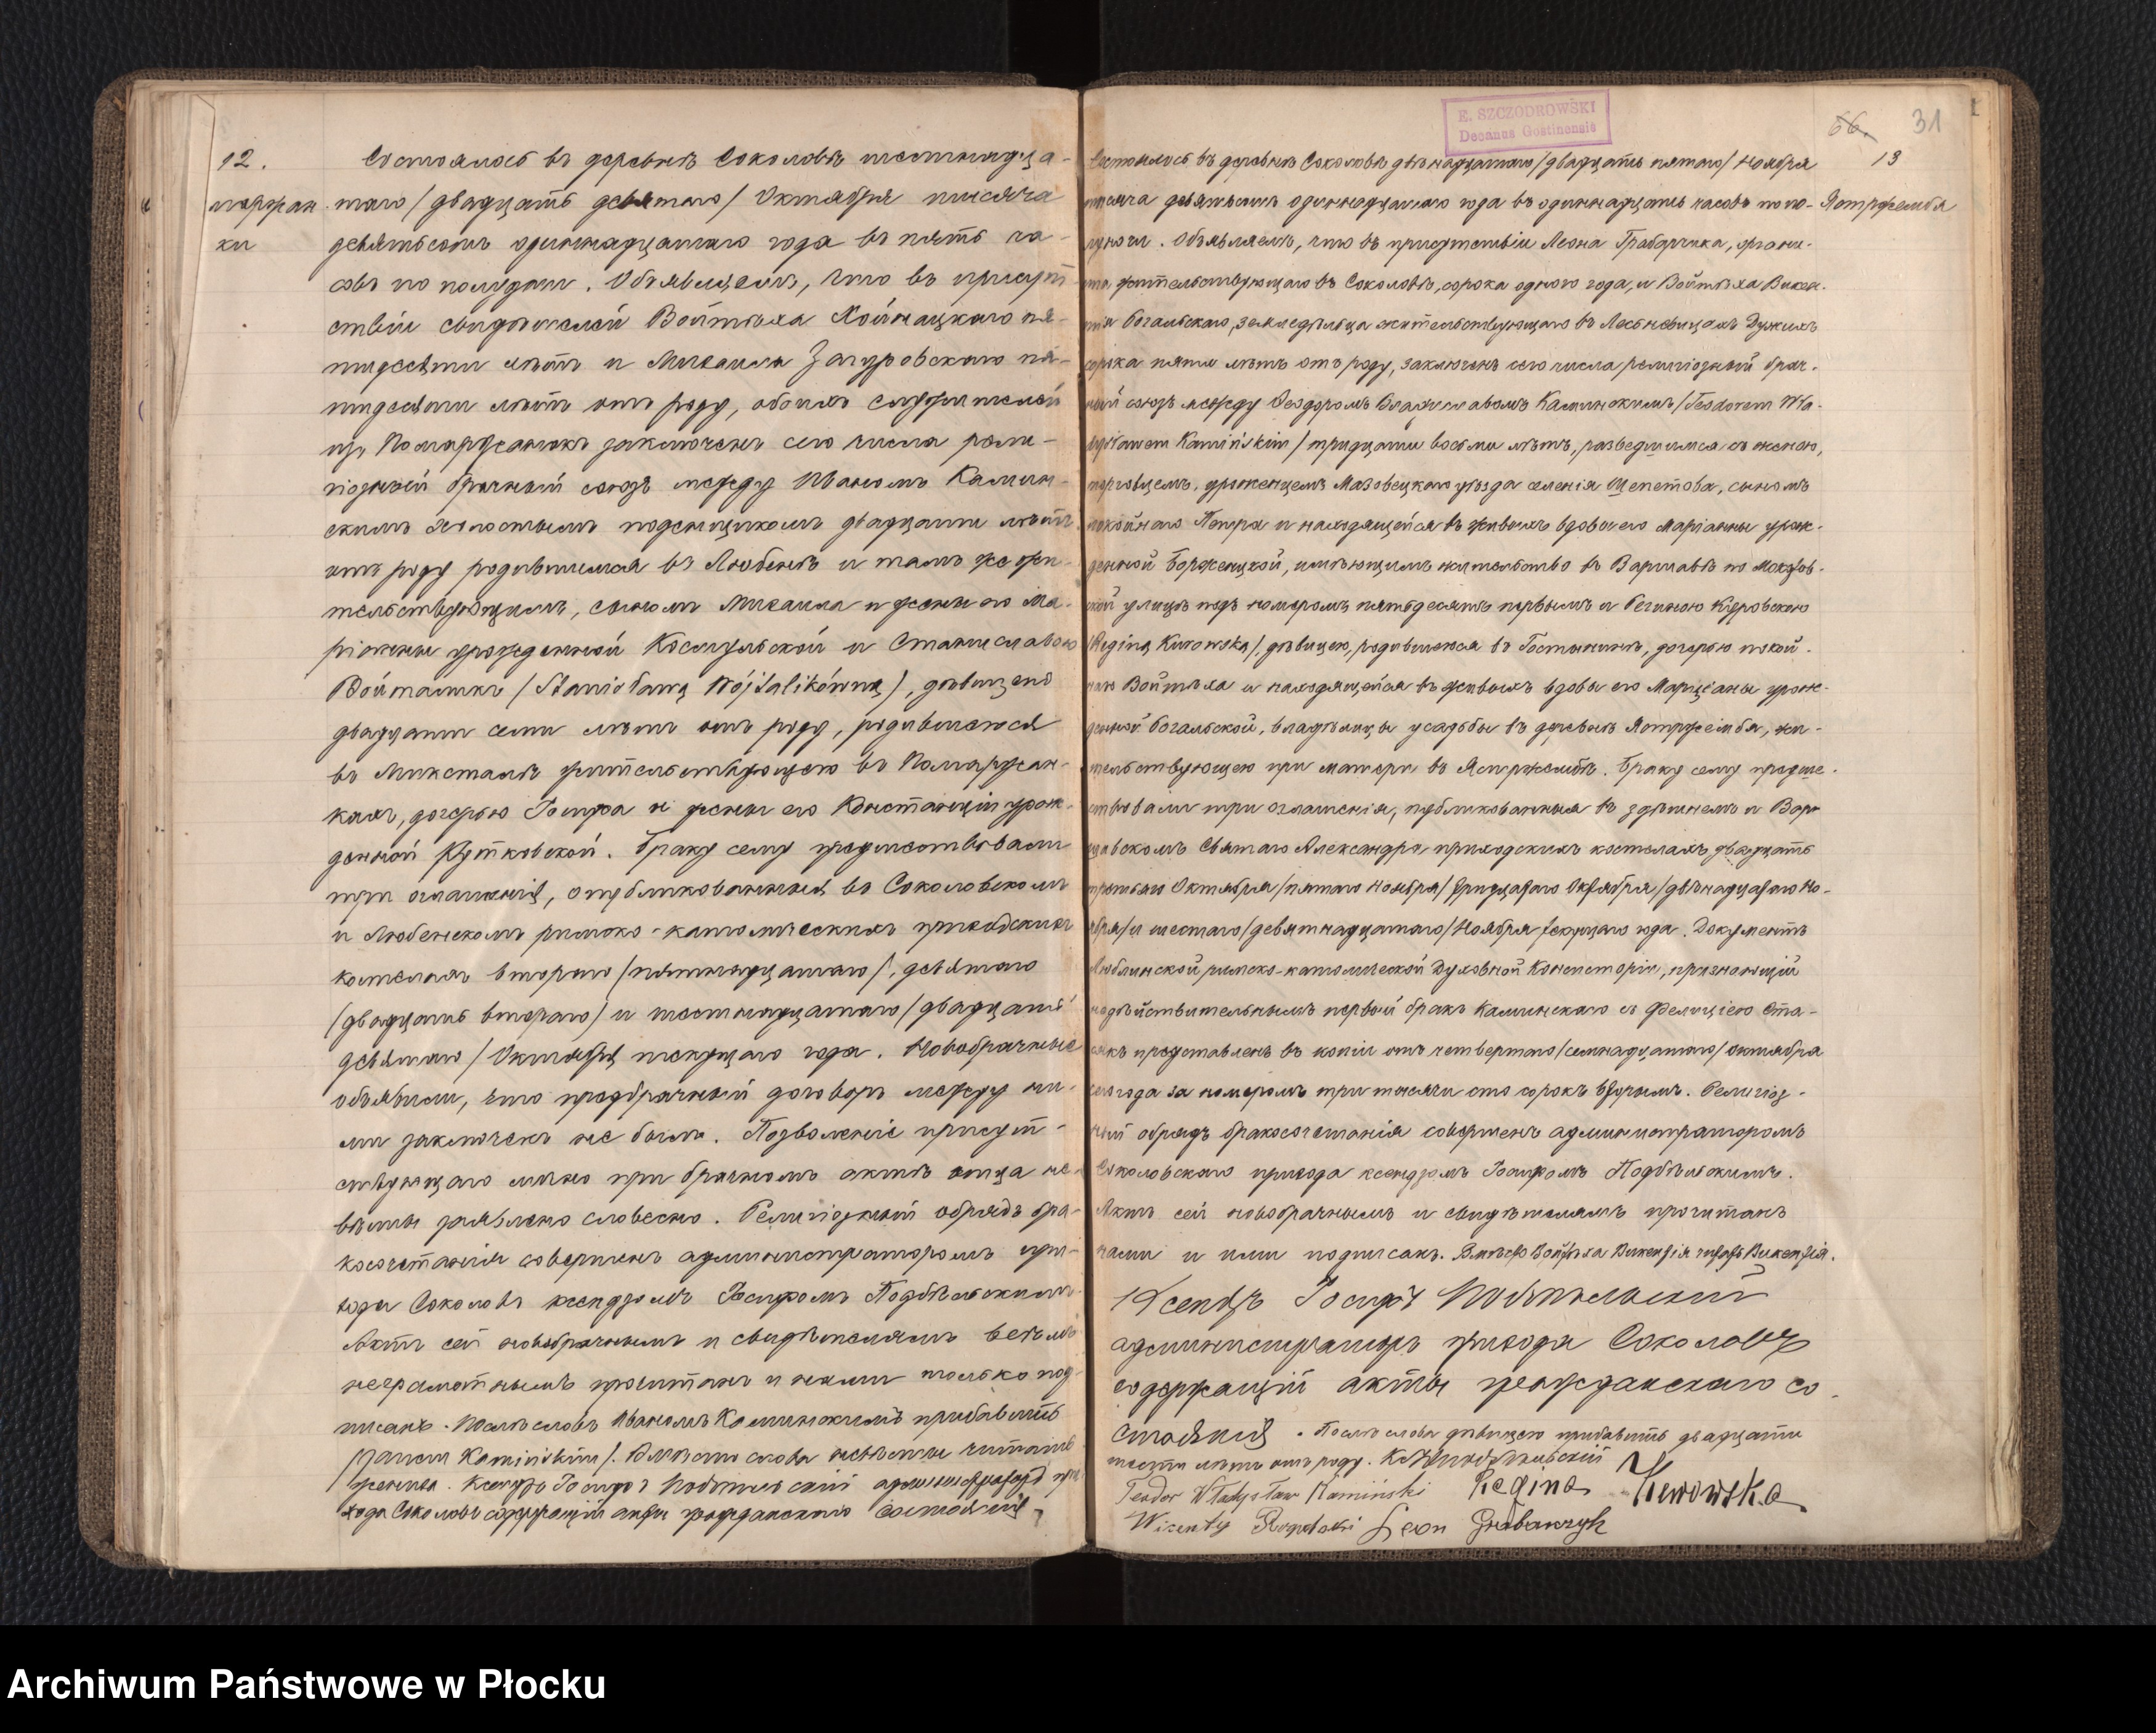 12.
Состоялось въ деревнѣ Соколовѣ шестнадца-
таго /двадцать девятаго/ Октября тысяча
девятьсотъ одиннадцатаго года въ пять ча-
совъ по полудни. Объявляемъ, что въ присут-
ствіи свидѣтелей Войтѣха Хойнацкаго пя-
тидесяти лѣтъ и Михаила Загуровскаго пя-
тидесяти лѣтъ отъ роду, обоихъ служителей
изъ заключенъ сего числа рели-
гіозный брачный союзъ между Иваномъ Камин-
скимъ холостымъ поденщикомъ двадцати лѣтъ
отъ роду родившимся въ Любенѣ и тамъ же жи-
тельствующимъ, сыномъ Михаила и жены его Ма-
ріанны урожденной и Станиславою
Войталикъ /Stanisławą Wójtalikówną/, дѣвицею
двадцати семи лѣтъ отъ роду, родившеюся
въ Миксталѣ жительствующею въ
кахъ, дочерью Іосифа и жены его Констанціи урож-
денной Рутковской. Браку сему предшествовали
три оглашенія, опубликованныя въ Соколовскомъ
и Любенскомъ римско-католическихъ приходскихъ
костелахъ второго /пятнадцатаго/, девятаго
/двадцать второго/ и шестнадцатаго /двадцать
девятаго/ Октября текущаго года. Новобрачные
объявили, что предбрачный договоръ между ни-
ми заключенъ не былъ. Позволеніе присут-
ствующаго лично при брачномъ актѣ отца не-
вѣсты заявлено словесно. Религіозный обрядъ бра-
косочетанія совершенъ администраторомъ при-
хода Соколовъ ксендзомъ Іосифомъ Подбѣльскимъ.
Актъ сей новобрачнымъ и свидѣтелямъ всѣмъ
неграмотнымъ прочитанъ и нами только под-
писанъ. Послѣ словъ Иваномъ Каминскимъ прибавить
/Janem Kamińskim/. Вмѣсто слова невѣсты читать
жениха. Ксендзъ Іосифъ Подбѣльскій администраторъ при-
хода Соколовъ содержащій акты гражданскаго состоянія
E. SZCZODROWSKI
Decanus Gostinensis
66.
31
13
Ястржембя
Состоялось въ деревнѣ Соколовѣ двѣнадцатаго /двадцать пятаго/ Ноября
тысяча девятьсотъ одиннадцатаго года въ одиннадцать часовъ по по-
луночи. Объявляемъ, что въ присутствіи Леона Грабарчика, органи-
ста жительствующаго въ Соколовѣ, сорока одного года, и Войтѣха Викен-
тія Рогальскаго, земледѣльца жительствующаго въ
сорока пяти лѣтъ отъ роду, заключенъ сего числа религіозный брач-
ный союзъ между Ѳеодоромъ Владиславомъ Каминскимъ /Teodorem Wła-
dysławem Kamińskim/ тридцати восьми лѣтъ, разведшимся съ женою,
торговцемъ, уроженцемъ Мазовецкаго уѣзда селенія Щепетова, сыномъ
покойнаго Петра и находящейся въ живыхъ вдовы его Маріанны урож-
денной имѣющимъ жительство въ Варшавѣ по Мокотов-
ской улицѣ подъ номеромъ пятьдесятъ первымъ и Региною Куровскою
/Reginą Kurowską/, дѣвицею, родившеюся въ Гостынинѣ, дочерью покой-
наго Войтѣха и находящейся въ живыхъ вдовы его Марціаны урож-
денной Рогальской, владѣлицы усадьбы въ деревнѣ Ястржембя, жи-
тельствующею при матери въ Ястржембѣ. Браку сему предше-
ствовали три оглашенія, публикованныя въ здѣшнемъ и Вар-
шавскомъ Святаго Александра приходскихъ костелахъ двадцать
третьяго Октября /пятаго Ноября/ тридцатаго Октября /двѣнадцатаго Но-
ября/ и шестаго /девятнадцатаго/ Ноября текущаго года. Документъ
Люблинской римско-католической Духовной Консисторіи, признающій
недѣйствительнымъ первый бракъ Каминскаго съ Фелиціею Ста-
сякъ представленъ въ копіи отъ четвертаго /семнадцатаго/ октября
сего года за номеромъ три тысячи сто сорокъ вторымъ. Религіоз-
ный обрядъ бракосочетанія совершенъ администраторомъ
Соколовскаго прихода ксендзомъ Іосифомъ Подбѣльскимъ.
Актъ сей новобрачнымъ и свидѣтелямъ прочитанъ
нами и ими подписанъ. Вмѣсто Войтѣха Викентія читать Викентія.
Ксендзъ Іосифъ Подбѣльскій
администраторъ прихода Соколовъ
содержащій акты гражданскаго со-
стоянія. Послѣ слова дѣвицею прибавить двадцати
шести лѣтъ отъ роду. Кс. Подбѣльскій
Teodor Władysław Kamiński Regina Kurowska
Wicenty Rogalski Leon Grabarczyk
Archiwum Państwowe w Płocku